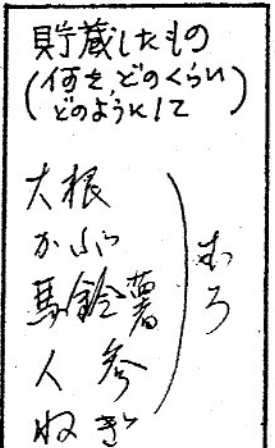 貯蔵したもの
(何を、どのくらい
どのようにして)
大根
かぶ
馬鈴薯
人参
ねぎ
むろ